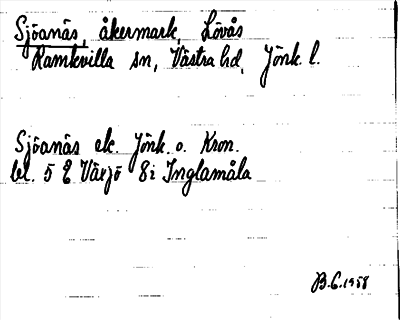 Sjöanäs, åkermark, Lövås
Ramkvilla sn, Västra hd, Jönk. l.
Sjöanäs ek. Jönk. o. Kron.
bl. 5 E Växjö 8i Inglamåla
B.G. 1958